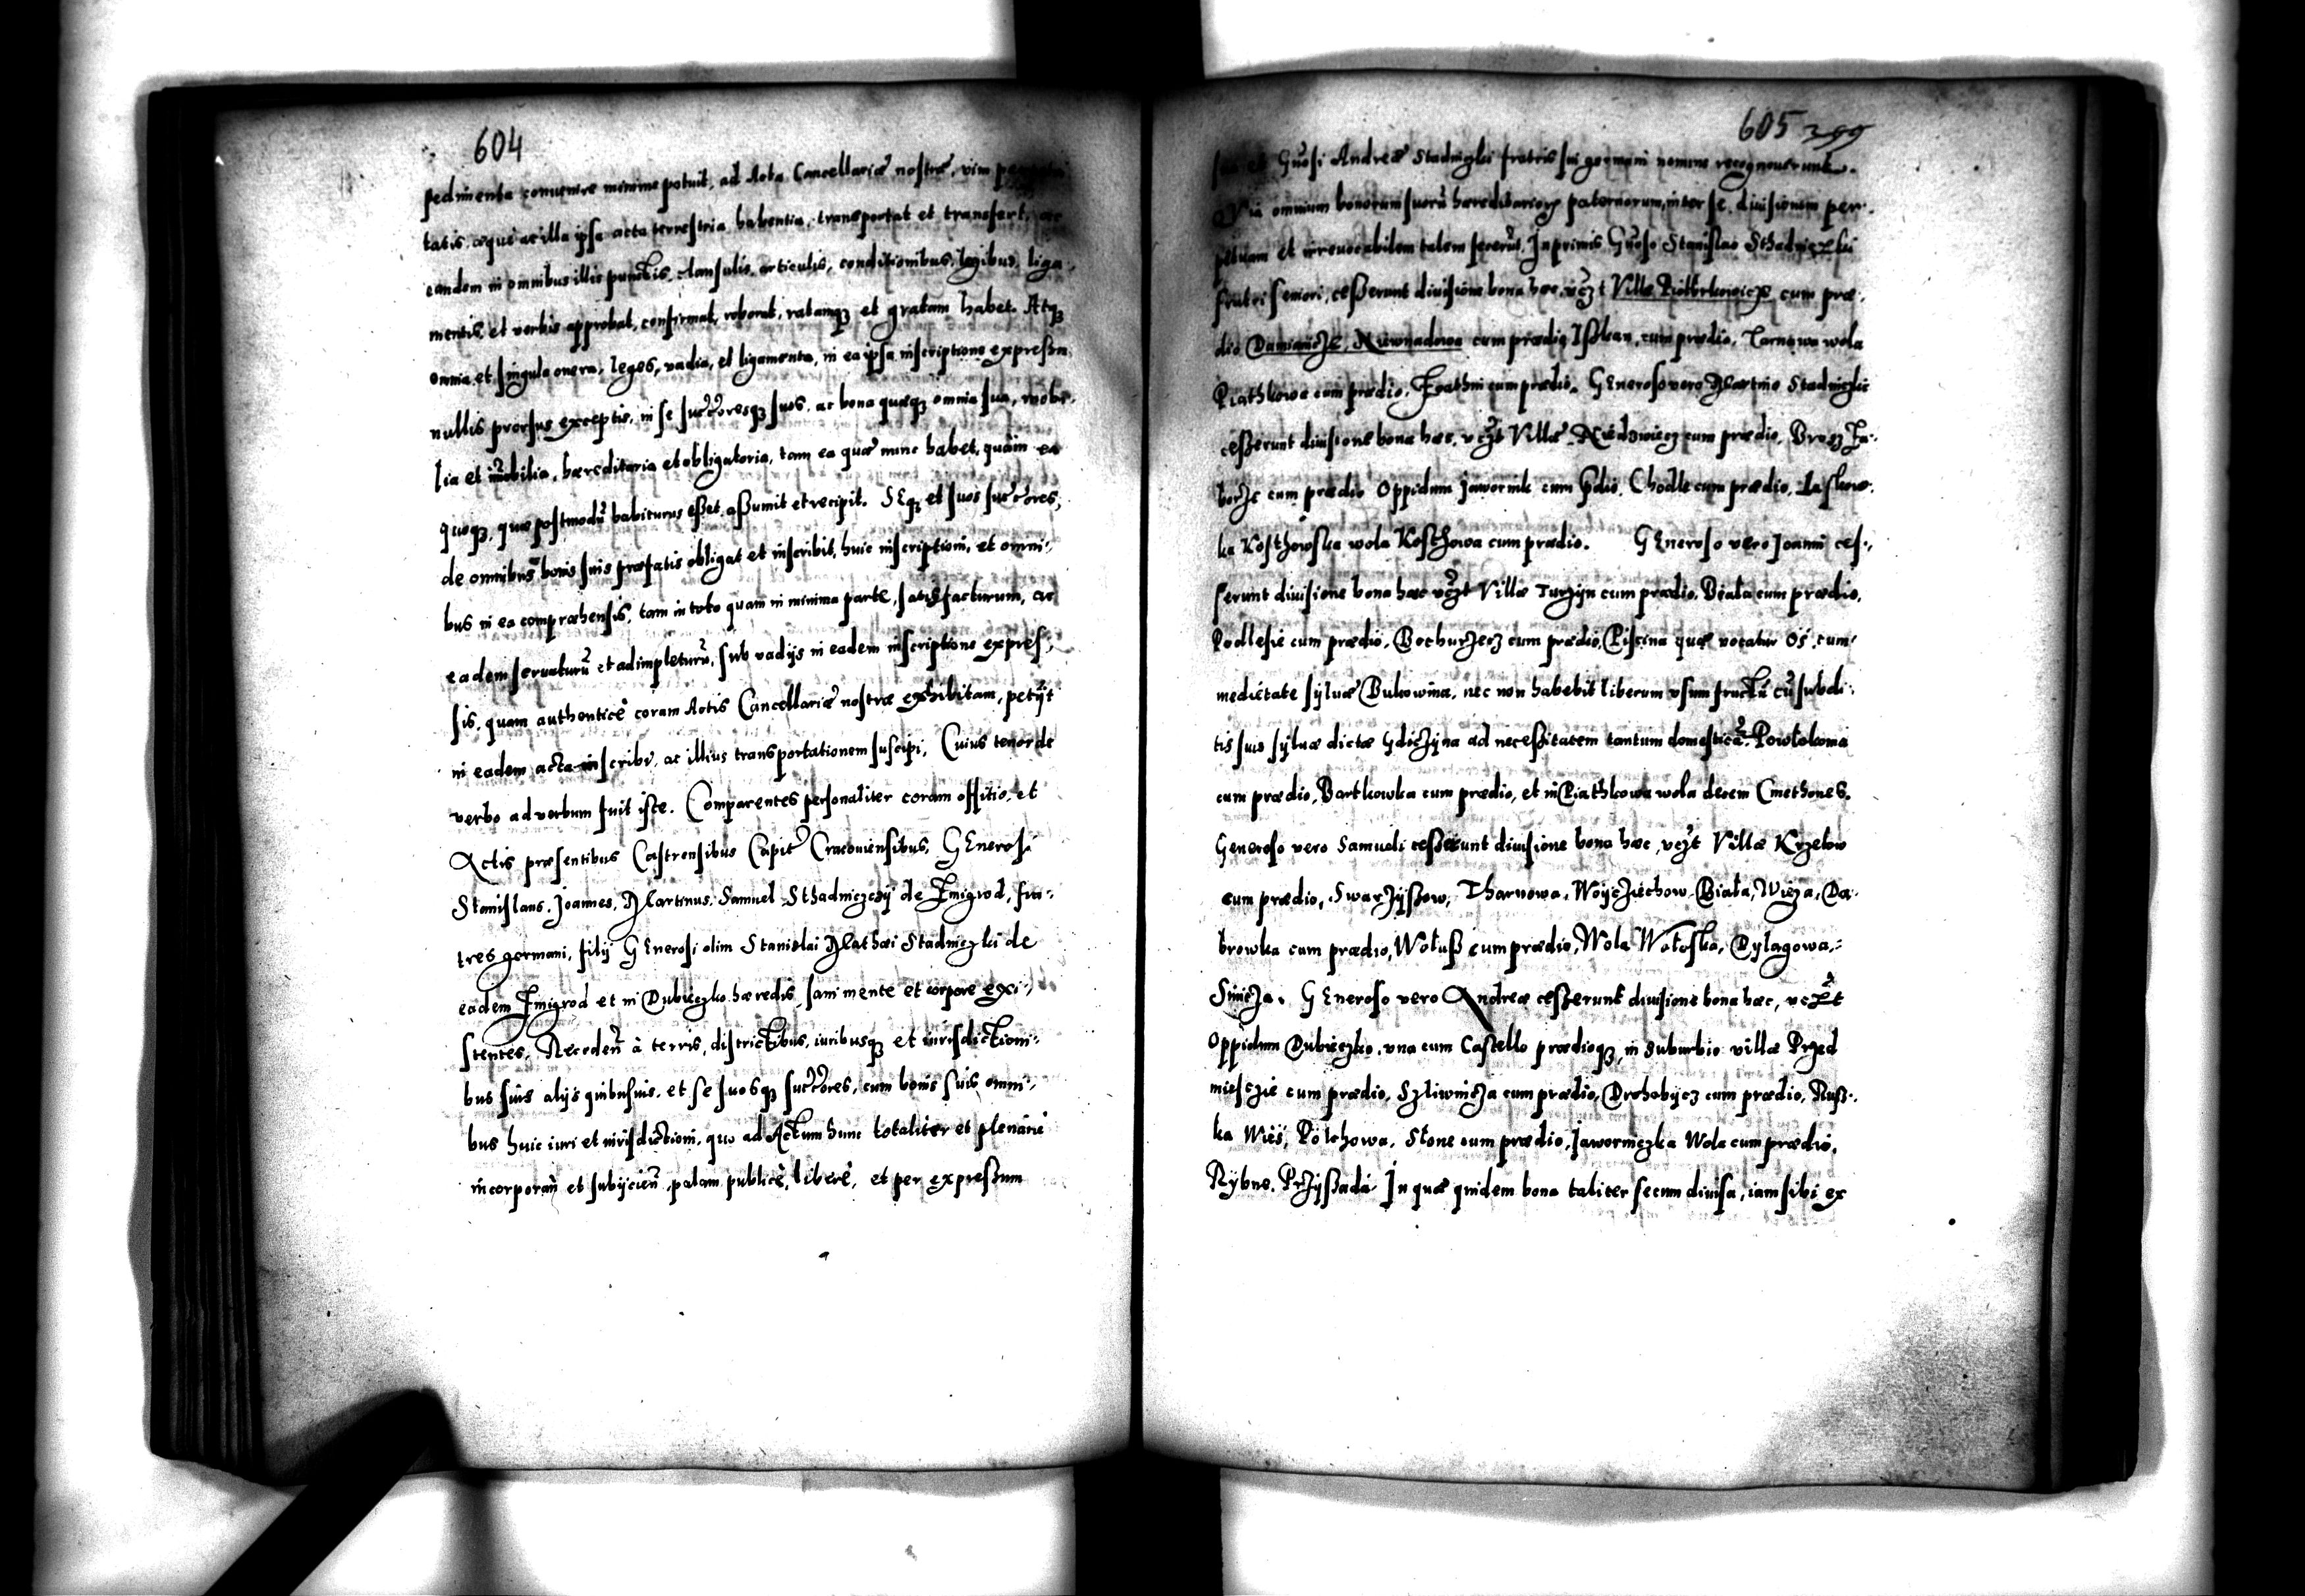 604
pedimenta convenire minime potuit, ad Acta Cancellariæ nostræ, vim
tatis, æque ac illa ipsa acta terrestria habentia, transportat et transfert, ac
eandem in omnibus illis punctis, clausulis, articulis, conditionibus, legibus, liga-
mentis, et verbis approbat, confirmat, roborat, ratamq3 et gratam habet. Atq3
omnia et singula onera, leges, vadia, et ligamenta, in ea ipsa inscriptione expressa
nullis prorsus exceptis, in se succoresq3 suos, ac bona quæq3 omnia sua, mobi-
lia et imobilia, hæreditaria et obligatoria, tam ea quæ nunc habet, quàm ea
quoq3, quæ postmodū habiturus esset, assumit et recipit. SEq3 et suos succores,
de omnibus bonis suis præfatis obligat et inscribit, huic inscriptioni, et omni-
bus in ea compræhensis, tam in toto quam in minima parte, satisfacturum, ac
eadem servaturū et adimpleturū, sub vadijs in eadem inscriptione expres-
sis, quam authenticè coram Actis Cancellariæ nostræ exhibitam, petijt
in eadem acta inscribi, ac illius transportationem suscipi, Cuius tenor de
verbo ad verbum fuit iste. Comparentes personaliter coram offitio, et
Actis præsentibus Castrensibus Capit Cracoviensibus, GEnerosi
Stanislaus, Joannes, Martinus, Samuel Sthadniczczÿ de Zmigrod, fra-
tres germani, filij GEnerosi olim Stanislai Mathæi Stadniczki de
eadem Zmigrod et in Dubieczko hæredis, sani mente et corpore exi-
stentes, Receden à terris, districtibus, iuribusq3 et iurisdictioni-
bus suis alijs quibusuis, et se suosq3 succores, cum bonis suis omni-
bus huic iuri et iurisdictioni, quo ad Actum hunc totaliter et plenariè
incorporan et subijcien, palam publicè, liberè, et per expressum
605 399
et Gnosi Andreæ Stadniczki fratris sui germani nomine recognoverunt.
Quia omnium bonorum suorū hæreditariorū paternorum, inter se, divisionem per-
petuam et irrevocabilem talem fecerūt. Inprimis Gnoso Stanislao Sthadniczki
fratri seniori, cesserunt divisione bona hæc, vczt Villæ Piotrkowicze cum præ-
dio Damianicze, Niewnadowa cum prædio, Isskan, cum prædio, Tarnawa wola
Piathkowa cum prædio, Zoathni cum prædio. GEneroso vero Martino Stadniczki
cesserunt divisione bona hæc, vczt Villæ Niedzwiecz cum prædio, Brzez Za-
borze cum prædio Oppidum Jawornik cum pdio, Chodle cum prædio, Laskow-
ka Kosthowska wola Kosthowa cum prædio. GEneroso vero Joanni ces-
serunt divisione bona hæc vczt Villæ Turzijn cum prædio, Biała cum prædio,
Podlesie cum prædio, Bochurzecz cum prædio, Piscina quæ vocatur Oś, cum
medietate sylvæ Bukowina, nec non habebit liberum usum fructū cū subdi-
tis suis sylvæ dictæ Gdiczyna ad necessitatem tantum domesticā. Powłokoma
cum prædio, Bartkowka cum prædio, et in Piathkowa wola decem Cmethones.
Generoso vero Samueli cesserunt divisione bona hæc, vczt Villæ Krzelow
cum prædio, Swarzÿssow, Tharnowa, Woyciechow, Biała, Wieza, Da-
browka cum prædio, Wołuss cum prædio, Wola Wołoska, Dylagowa,
Siničza. GEneroso vero Andreæ cesserunt divisione bona hæc, vczt
Oppidum Dubieczko, una cum Castello prædioq3, in suburbio villæ Przed
miesczie cum prædio, Szliwnicza cum prædio, Drohobycz cum prædio, Russ-
ka Wieś, Połchowa, Słone cum prædio, Jaworniczka Wola cum prædio,
Rÿbne, Przÿssada. In quæ quidem bona taliter secum divisa, iam sibi ex